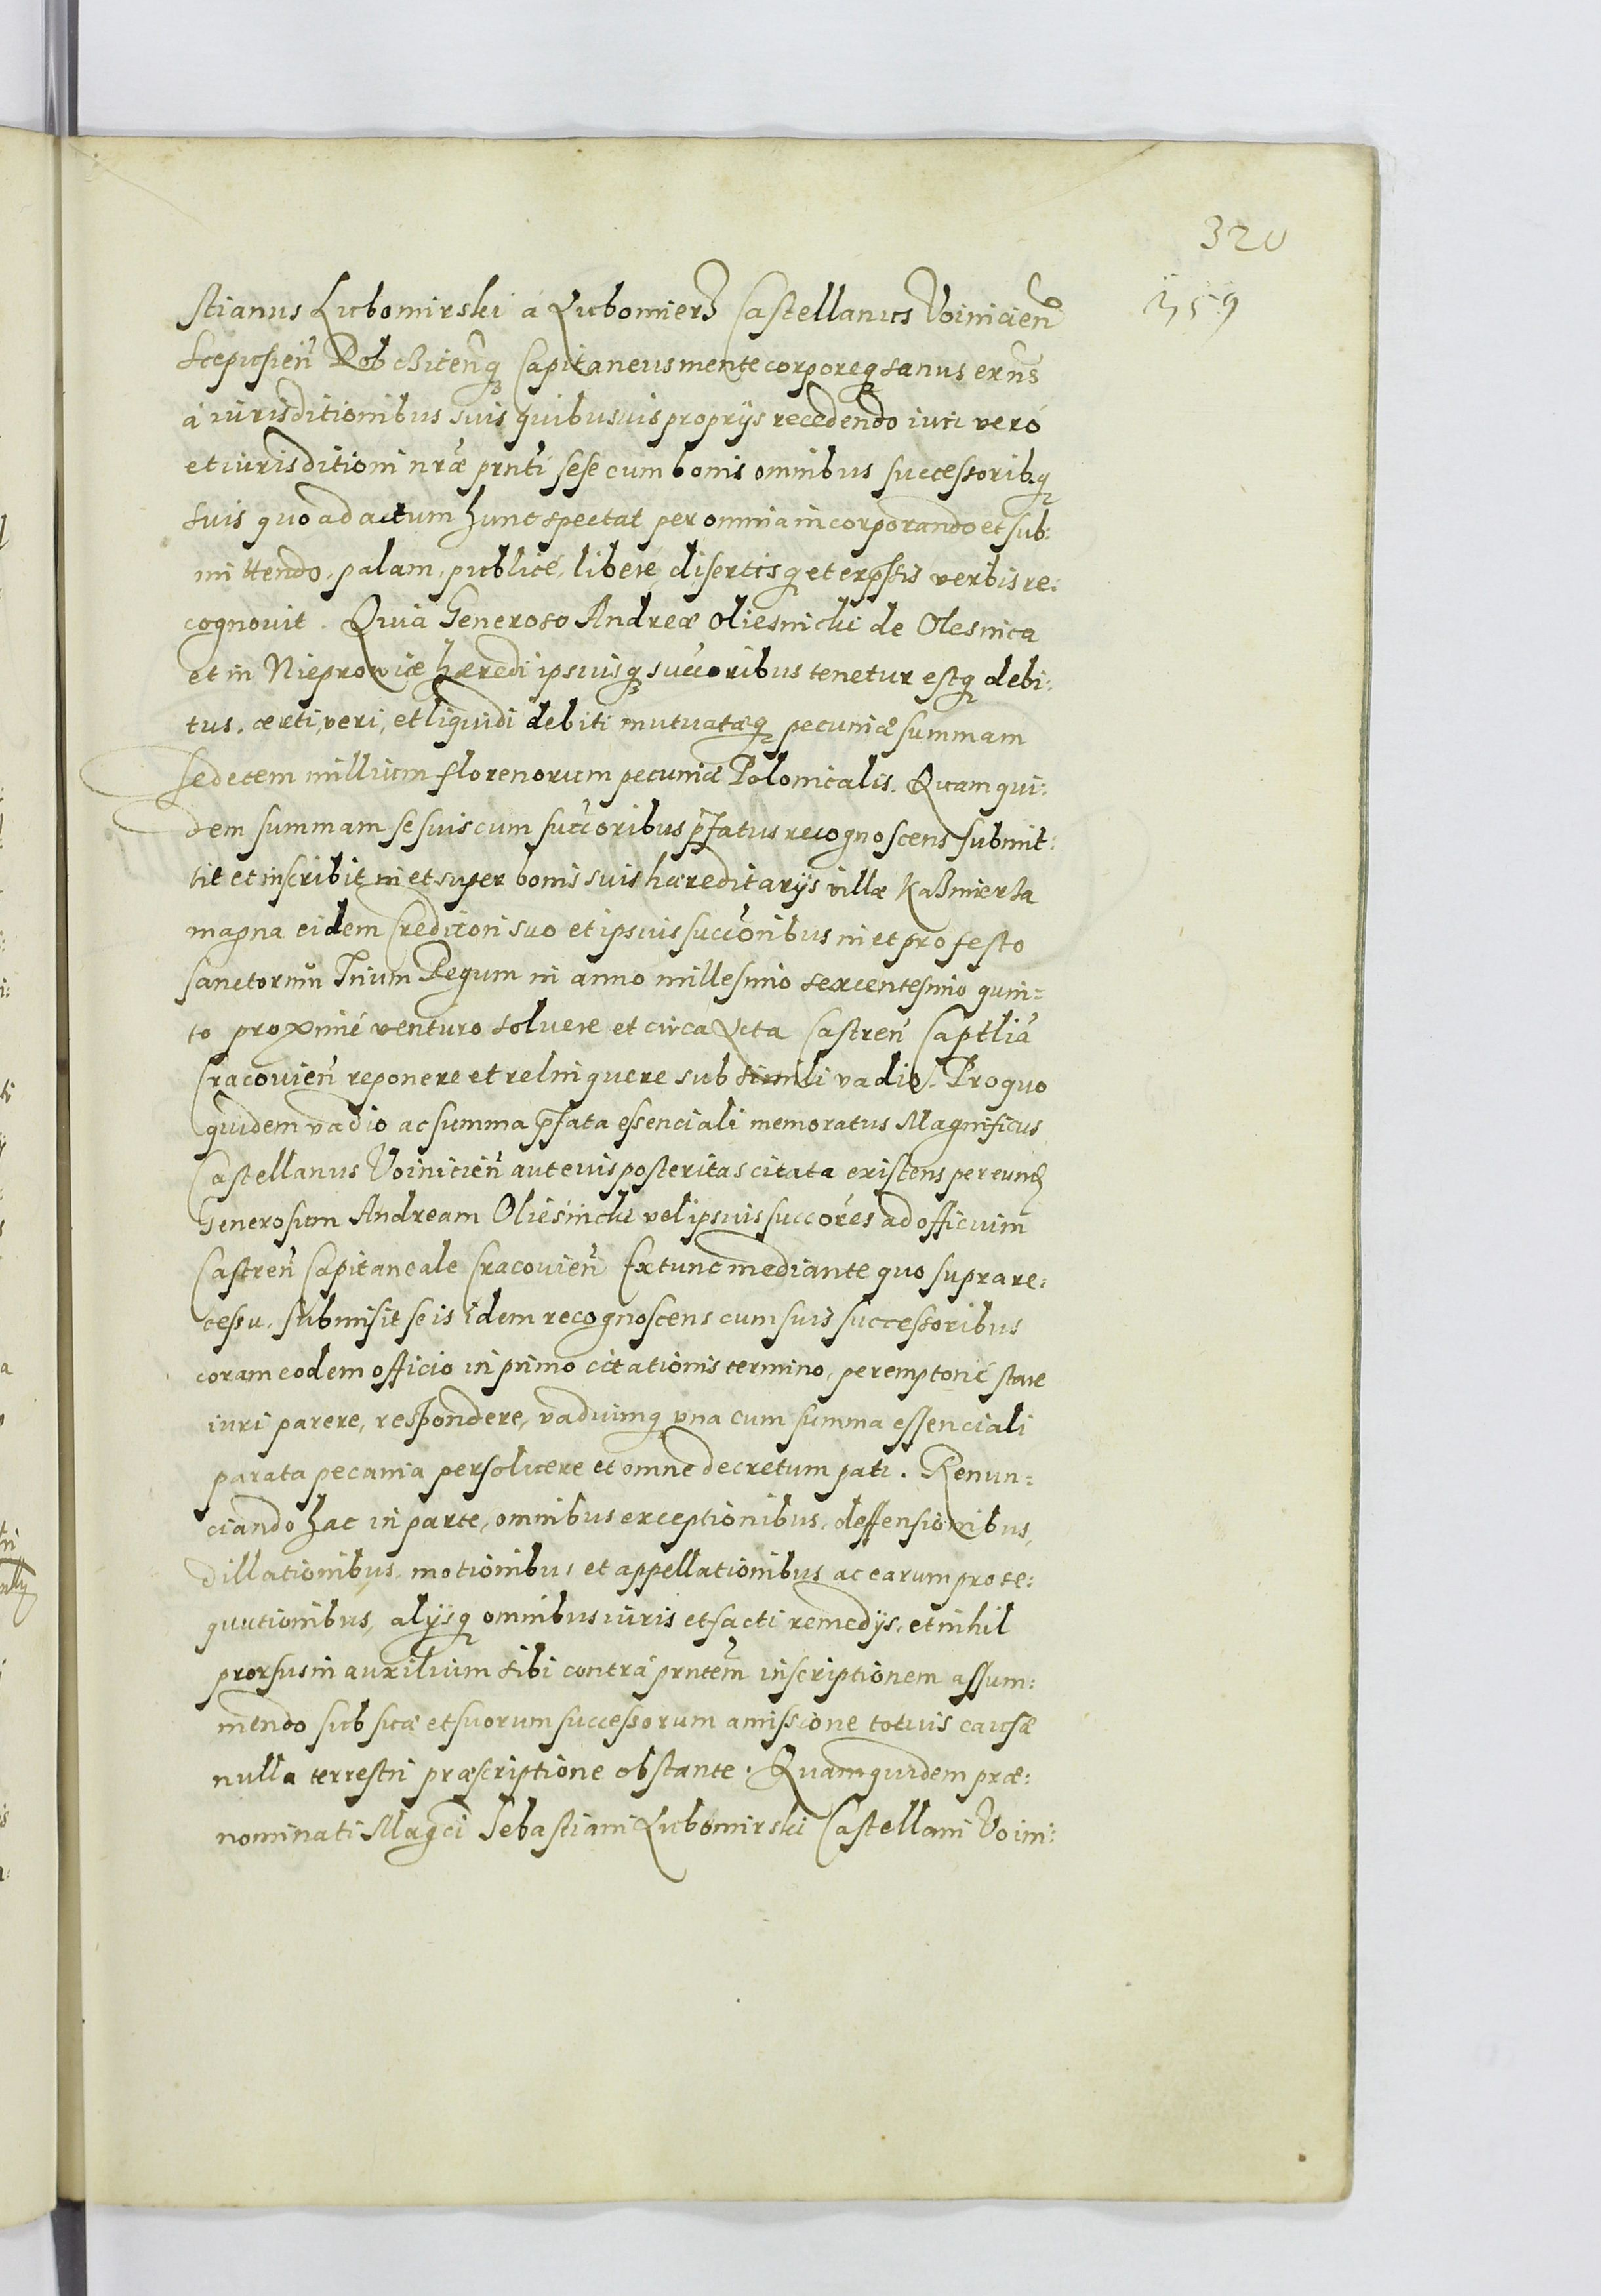 320
359
stianus Lubomirski á Lubomierz Castellanus Voinicien̄
Scepusien̄ Dobcżicen̄q̢ Capitaneus mente corporeq̢ sanus exn̄s
á iurisditionibus suis quibusvis proprijs recedendo iuri veró
et iurisditioni nr̄æ prn̄ti sese cum bonis omnibus successorib.q̢
suis quo ad actum hunc spectat per omnia incorporando et sub:
mittendo, palam, publicé, liberé, disertisq̢ et exp̄ssis verbis re:
cognovit. Quia Generoso Andreæ Oliesnicki de Olesnica
et in Nieprowice hæredi ipsiusq̢ succ̄oribus tenetur estq̢ debi:
tus, certi, veri, et liquidi debiti mutuatæq̢ pecuniæ summam
sedecem millium florenorum pecuniæ Polonicalis. Quam qui:
dem summam se suis cum succ̄oribus p̄fatus recognoscens submit:
tit et inscribit in et super bonis suis hæreditarijs villæ Kaźmierża
magna eidem Creditori suo et ipsius succ̄oribus in et pro festo
sanctorum̄ Trium Regum in anno millesimo sexcentesimo quin=
to proximé venturo solvere et circa Acta Castren̄ Captłia
Cracovien̄ reponere et relinquere sub simili vadio. Pro quo
quidem vadio ac summa p̄fata essenciali memoratus Magnificus
Castellanus Voinicien̄ aut eius posteritas citata existens per eund
Generosum Andream Oliésnicki vel ipsius succ̄ores ad officium
Castren̄ Capitaneale Cracovien̄ Extunc mediante quo supra re:
cessu, submisit se is idem recognoscens cum suis successoribus
coram eodem officio in primo citationis termino, peremptorié stare
iuri parere, respondere, vadiumq̢ una cum summa essenciali
parata pecunia persolvere et omne decretum pati. Renun=
ciando hac in parte, omnibus exceptionibus, deffensionibus,
dillationibus, motionibus et appellationibus ac earum prose:
quutionibus, alijsq̢ omnibus iuris et facti remedijs, et nihil
prorsus in auxilium sibi contrá prn̄tem inscriptionem assum:
mendo sub suæ et suorum successorum amissione totius causæ
nulla terrestri præscriptione obstante. Quam quidem præ:
nominati Mag̅ci Sebastiani Lubomirski Castellani Voini: